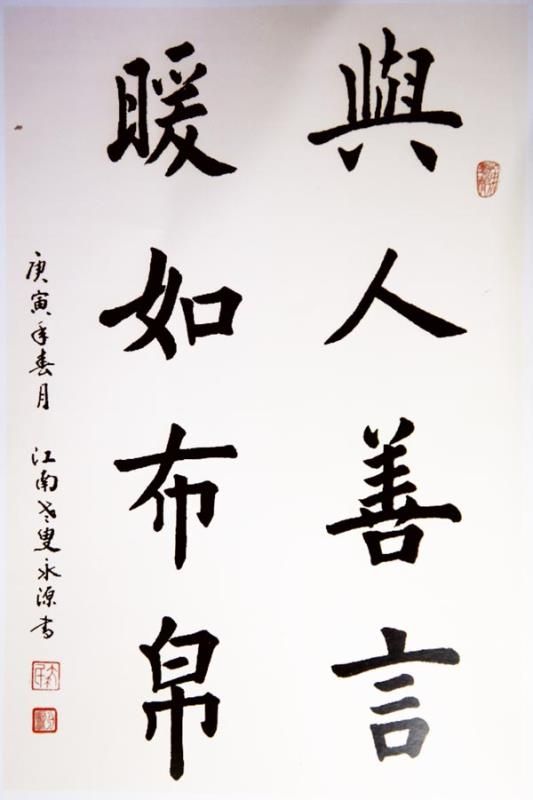 與人善言
暖如布帛
庚寅年春月 江南老叟永源书